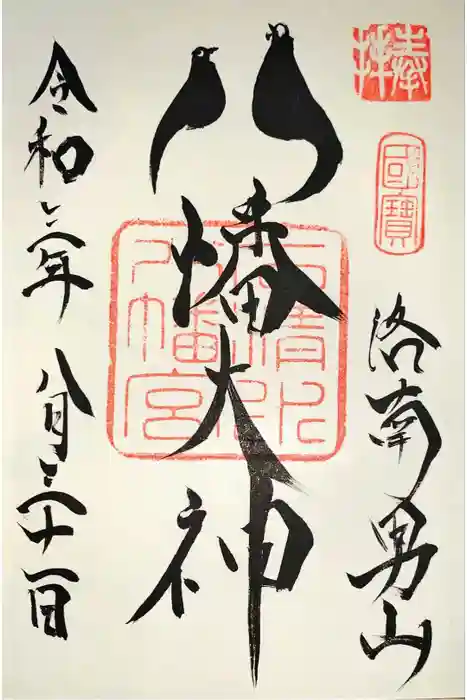 奉拝
國寳
洛南男山
八幡大神
石清水八幡宮
令和三年八月三十一日